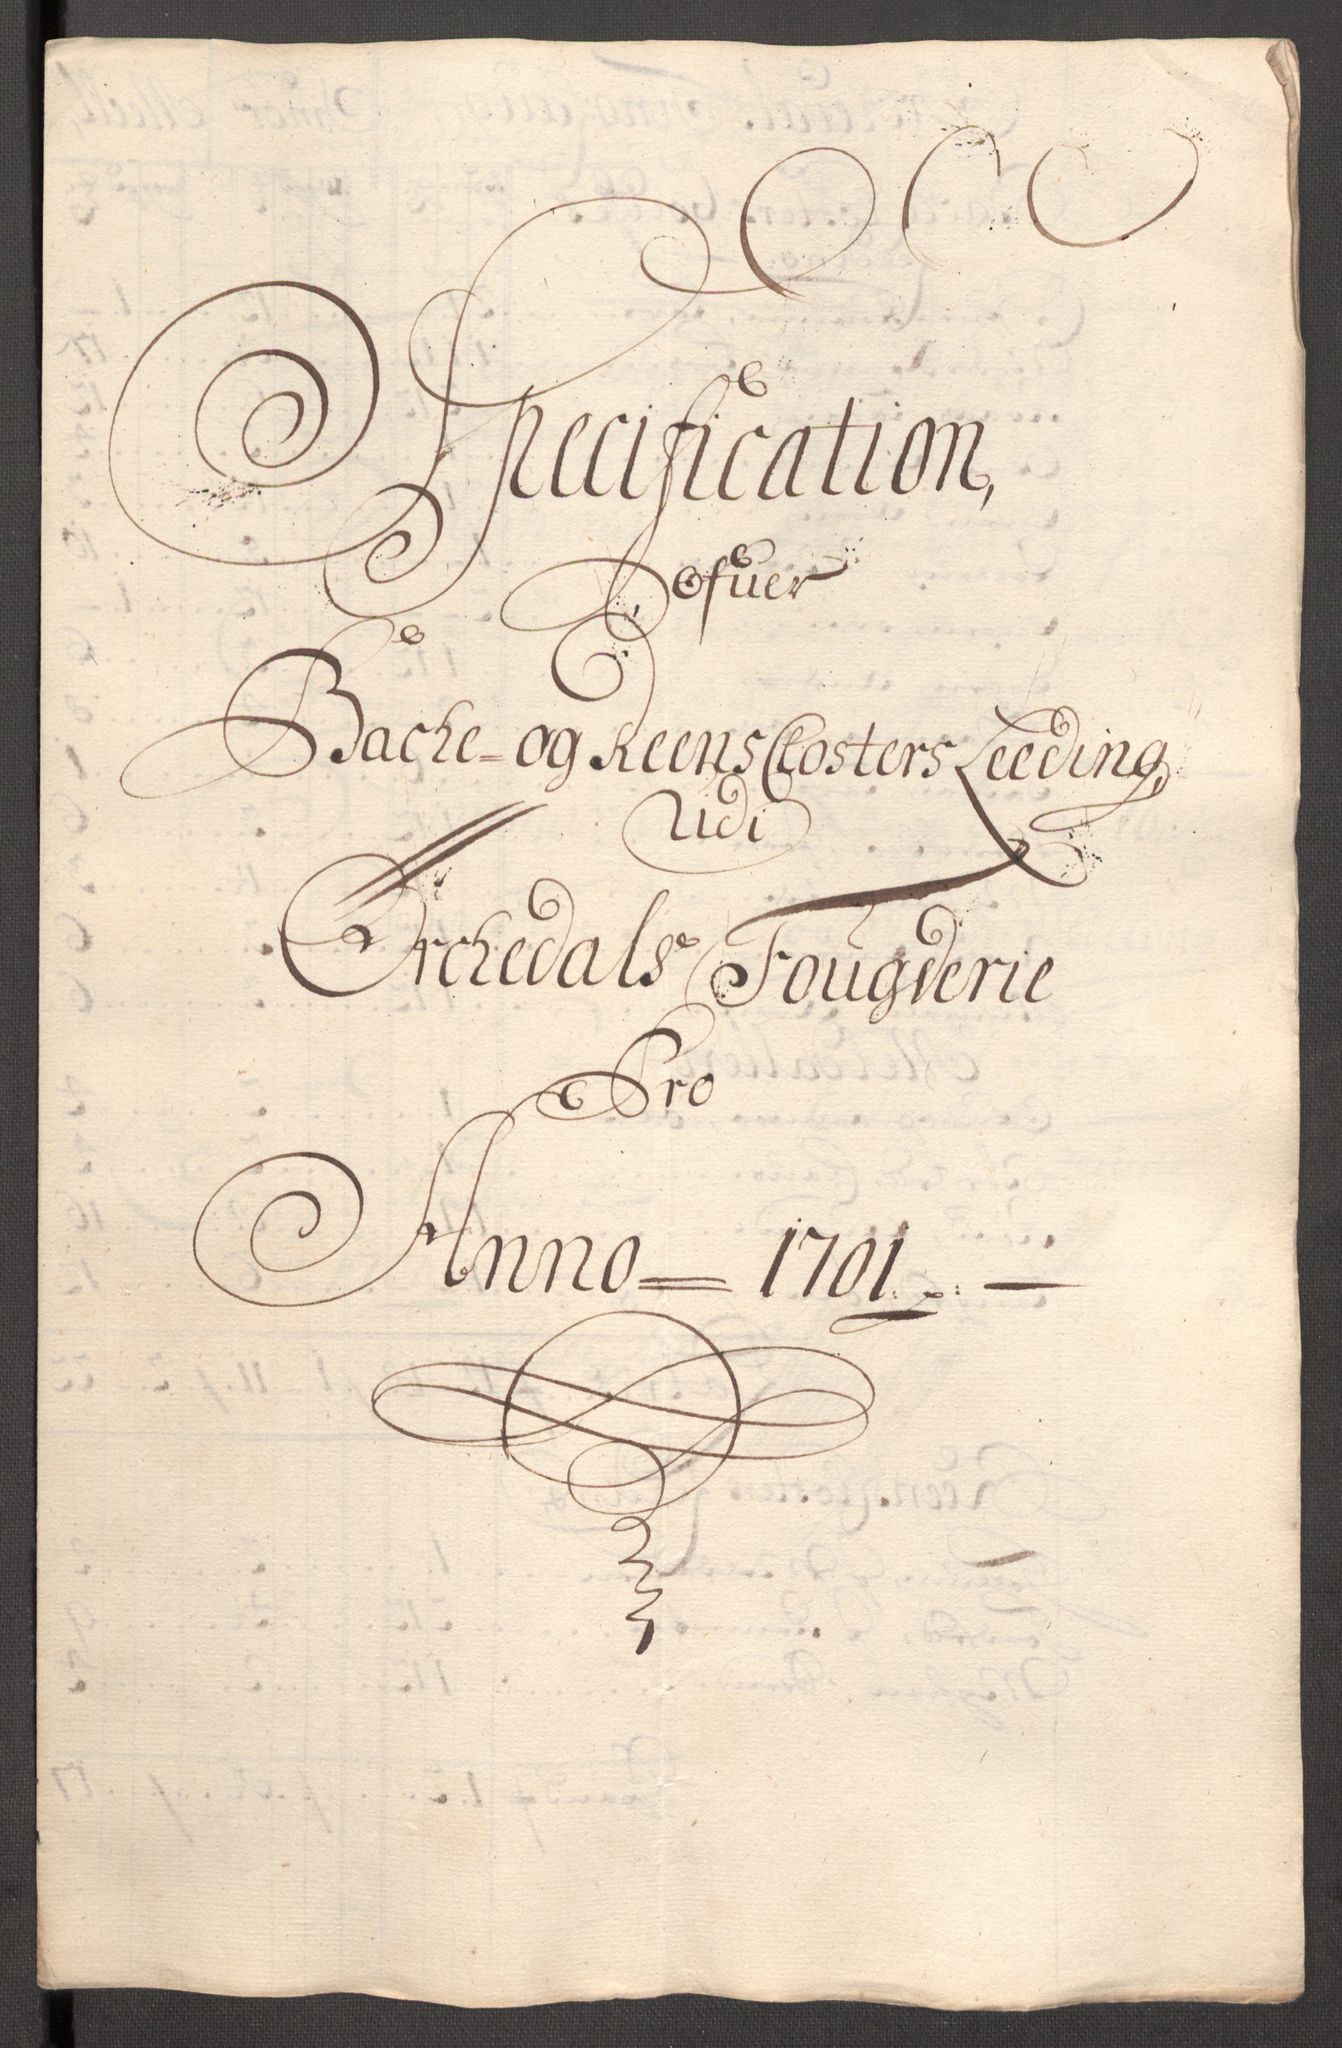 Specification,
Ofuer
Bache- og Reens Closters Leeding
Udi
Orchedals Fougderie
Pro
Anno = 1701. —